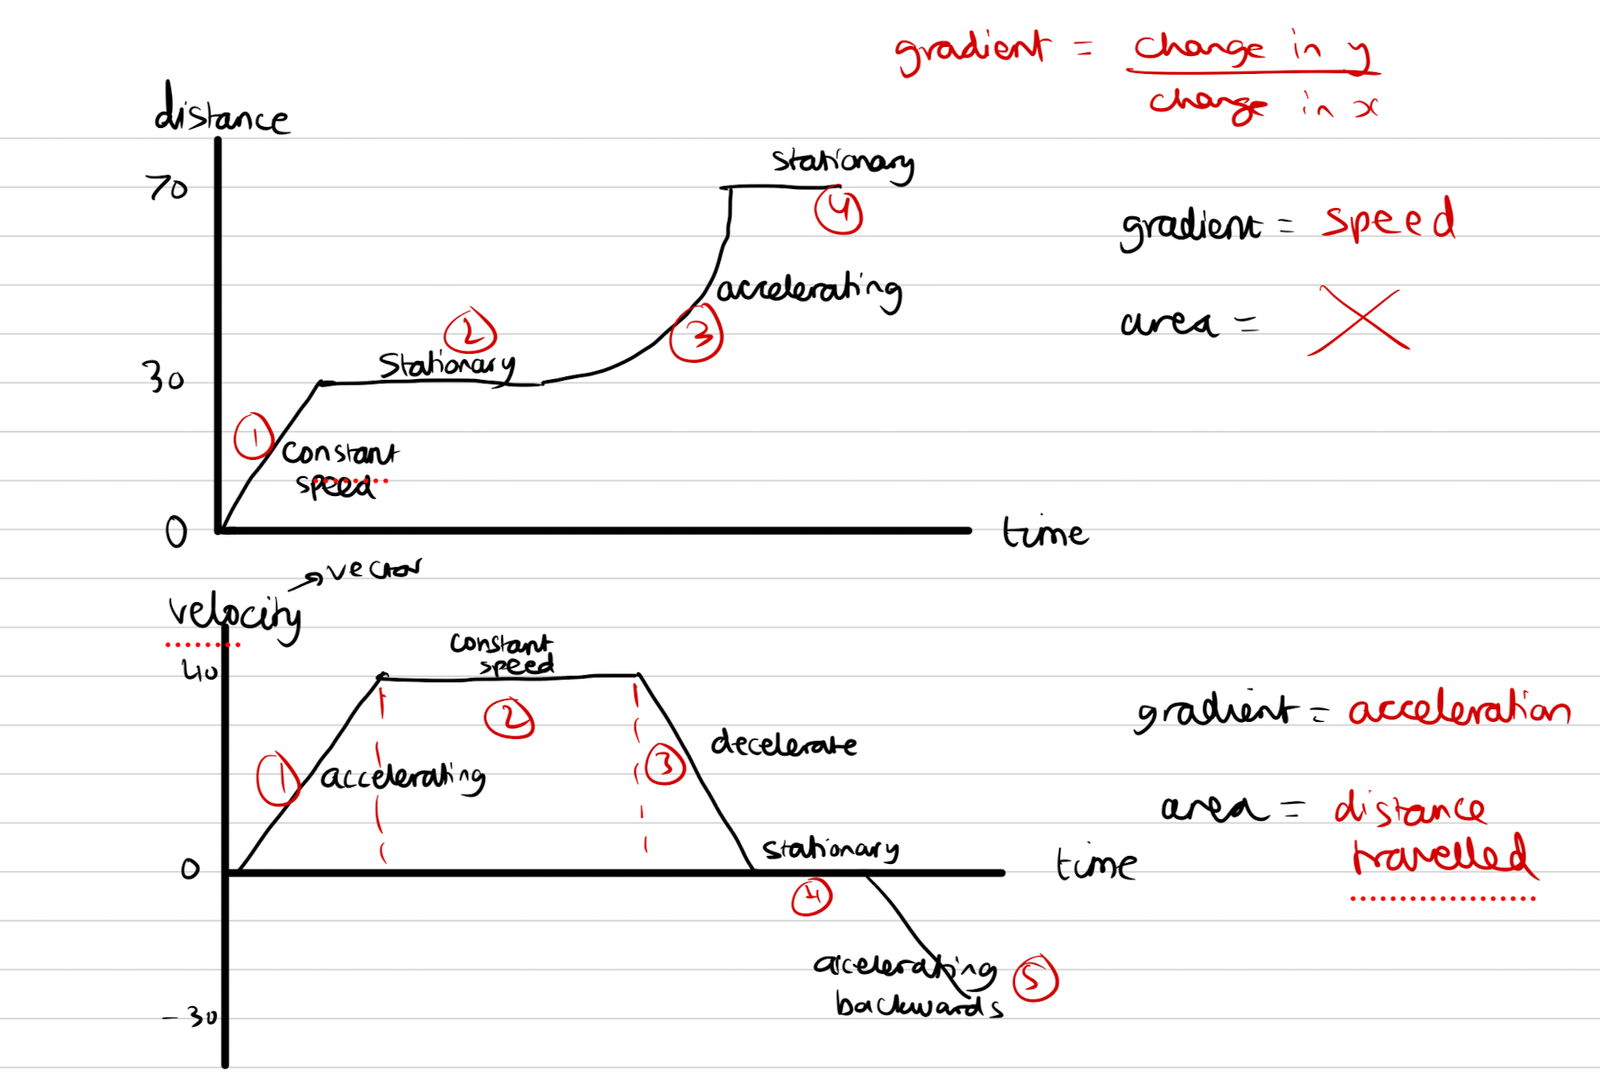 gradient = change in y
change in x
distance
70
stationary
4
gradient = speed
accelerating
3
area =
2
stationary
30
1
constant
speed
0
time
vector
velocity
40
constant
speed
2
gradient = acceleration
decelerate
3
1
accelerating
area = distance
travelled
stationary
0
time
4
accelerating
5
backwards
-30